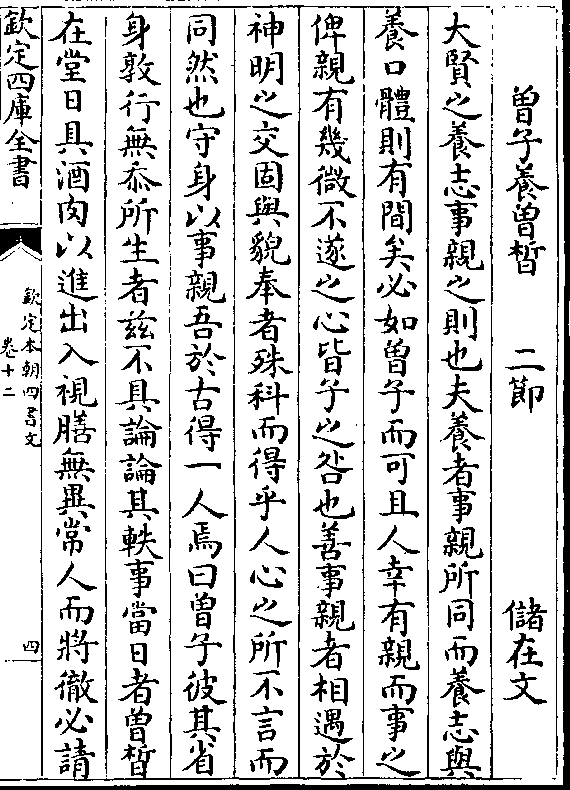 曾子養曾晳 二節 儲在文
大賢之養志事親之則也夫養者事親所同而養志與
養口體則有間矣必如曾子而可且人幸有親而事之
俾親有幾微不遂之心皆子之咎也善事親者相遇於
神明之交固與貌奉者殊科而得乎人心之所不言而
同然也守身以事親吾於古得一人焉曰曾子彼其省
身敦行無忝所生者兹不具論論其軼事當日者曾晳
在堂日具酒肉以進出入視膳無異常人而將徹必請
欽定四庫全書
欽定本朝四書文
卷十二
四